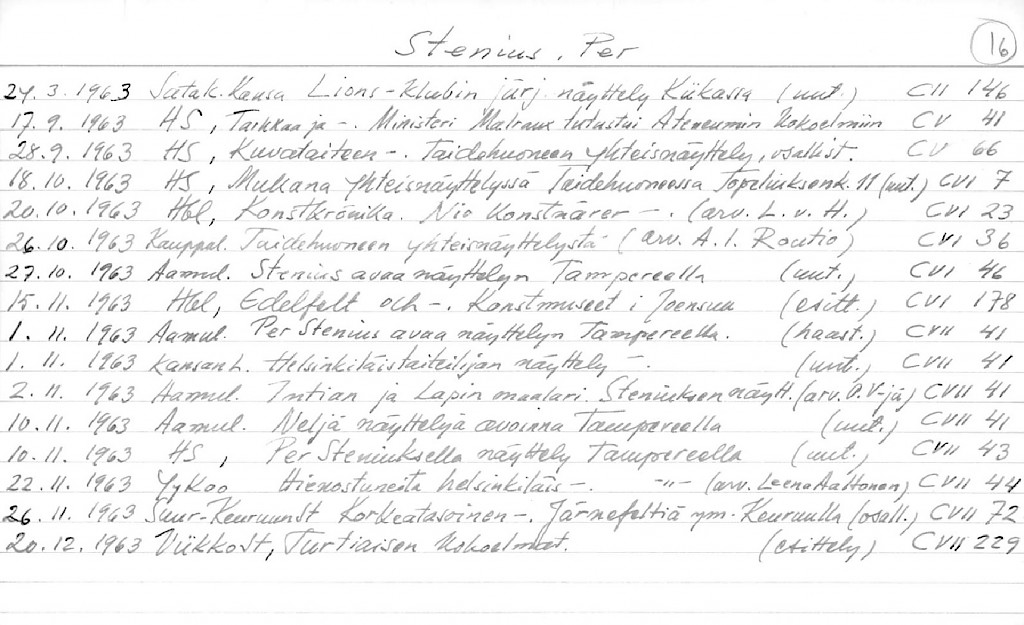 Stenius, Per
16
24.3.1963 Satak. Kansa Lions-klubin järj. näyttely Kiikassa (uut.) CII 146
17.9.1963 HS, Tarkkaaja -. Ministeri Malraux tutustui Ateneumin kokoelmiin CV 41
28.9.1963 HS, Kuvataiteen -. Taidehuoneen yhteisnäyttely, osallist. CV 66
18.10.1963 HS, Mukana yhteisnäyttelyssä Taidehuoneessa Topeliuksenk. 11 (uut.) CVI 7
20.10.1963 Hbl, Konstkrönika. Nio konstnärer -. (arv. L. v. H.) CVI 23
26.10.1963 Kauppal. Taidehuoneen yhteisnäyttelystä (arv. A. I. Routio) CVI 36
27.10.1963 Aamul. Stenius avaa näyttelyn Tampereella (uut.) CVI 46
15.11.1963 Hbl, Edelfelt och -. Konstmuseet i Joensuu (esitt.) CVI 178
1.11.1963 Aamul. Per Stenius avaa näyttelyn Tampereella. (haast.) CVII 41
1.11.1963 Kansan L. Helsinkiläistaiteilijan näyttely -. (uut.) CVII 41
2.11.1963 Aamul. Intian ja Lapin maalari. Steniuksen näytt. (arv. O.V-jä) CVII 41
10.11.1963 Aamul. Neljä näyttelyä avoinna Tampereella (uut.) CVII 41
10.11.1963 HS, Per Steniuksella näyttely Tampereella (uut.) CVII 43
22.11.1963 YyKoo Hienostuneita helsinkiläis -. -"- (arv. Leena Aaltonen) CVII 44
26.11.1963 Suur-Keuruu St Korkeatasoinen -. Järnefeltiä ym. Keuruulla (osall.) CVII 72
20.12.1963 Viikkost, Turtiaisen kokoelmat. (esittely) CVII 229